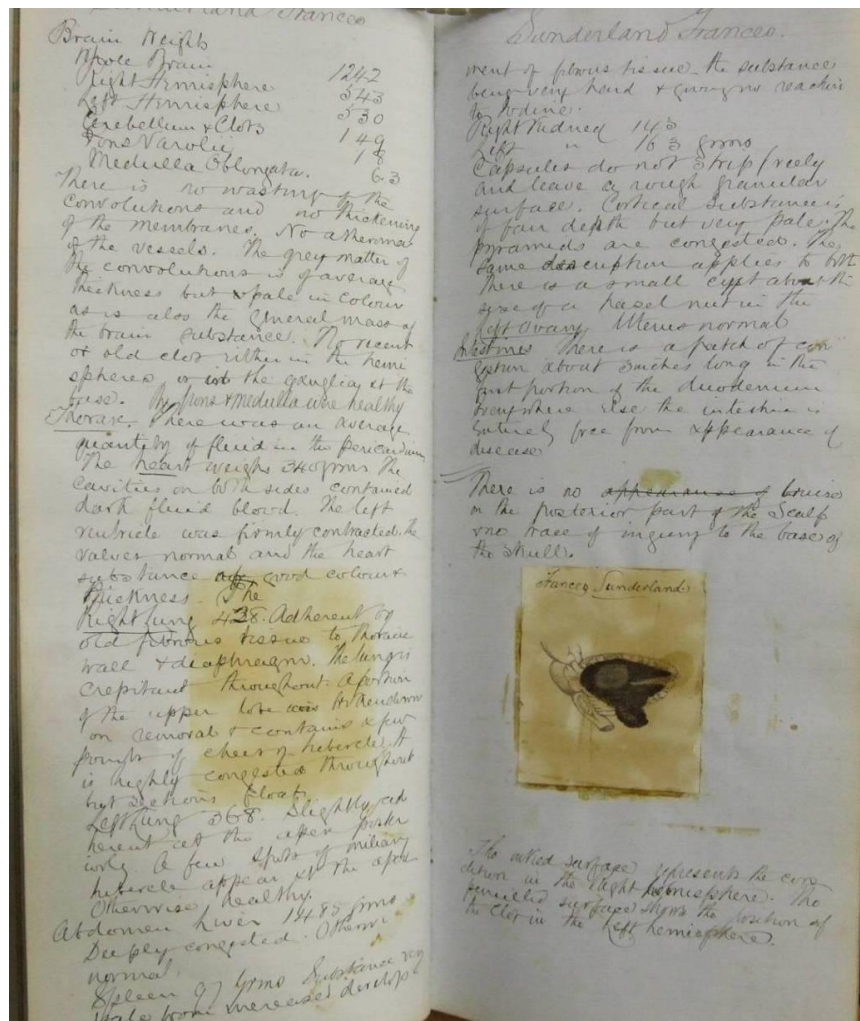 Sunderland Frances
Brain Weights
Whole Brain 1242
Right Hemisphere 543
Left Hemisphere 530
Cerebellum & Clots 149
Pons Varolii 18
Medulla Oblongata. 6.3
There is no wasting of the
convolutions and no thickening
of the membranes. No atheroma
of the vessels. The grey matter of
the convolutions is of average
thickness but pale in colour
as is also the general mass of
the brain substance. No recent
or old clot either in the hemi
spheres or in the ganglia at the
base. The pons & medulla were healthy
Thorax. There was an average
quantity of fluid in the pericardium
The heart weighs 340 grms The
cavities on both sides contained
dark fluid blood. The left
ventricle was firmly contracted. The
valves normal and the heart
substance good colour &
thickness. The
Right Lung 428. Adherent by
old fibrous tissue to thoracic
wall & diaphragm. The lung is
crepitant throughout. A portion
of the upper lobe was
on removal & contains a few
points of cheesy tubercle. It
is highly congested throughout
but sections float.
Left Lung 368. Slightly ad
herent at the apex poster
iorly A few spots of miliary
tubercle appear at the apex
Otherwise healthy.
Abdomen Liver 1485 grms
Deeply congested. Otherwise
normal.
Spleen 97 grms Substance very
pale from increased develop
Sunderland Frances.
ment of fibrous tissue. The substance
being very hard & giving no reaction
to Iodine.
Right Kidney 143
Left " 163 grms
Capsules do not strip freely
and leave a rough granular
surface. Cortical substance is
of fair depth but very pale. The
pyramids are congested. The
same description applies to both
There is a small cyst about the
size of a hazel nut in the
left ovary. Uterus normal
Intestines There is a patch of con
gestion about 3 inches long in the
first portion of the duodenum
Everywhere else the intestine is
entirely free from appearance of
disease
There is no appearance of bruise
on the posterior part of the Scalp
& no trace of injury to the base of
the skull.
Frances Sunderland.
The inked surface represents the
down in the right hemisphere. The
pencilled surface shows the position of
the clot in the left hemisphere.